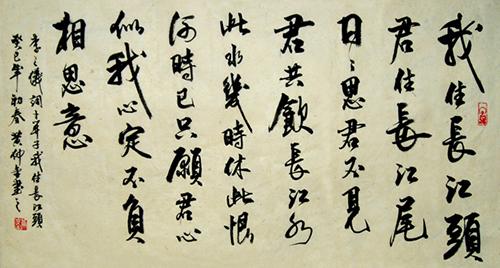 我住長江頭
君住長江尾
日〻思君不見
君共飲長江水
此水幾時休此恨
何時已只願君心
似我心定不負
相思意
李之儀詞卜算子我住長江頭
癸巳年初春黄仲書之